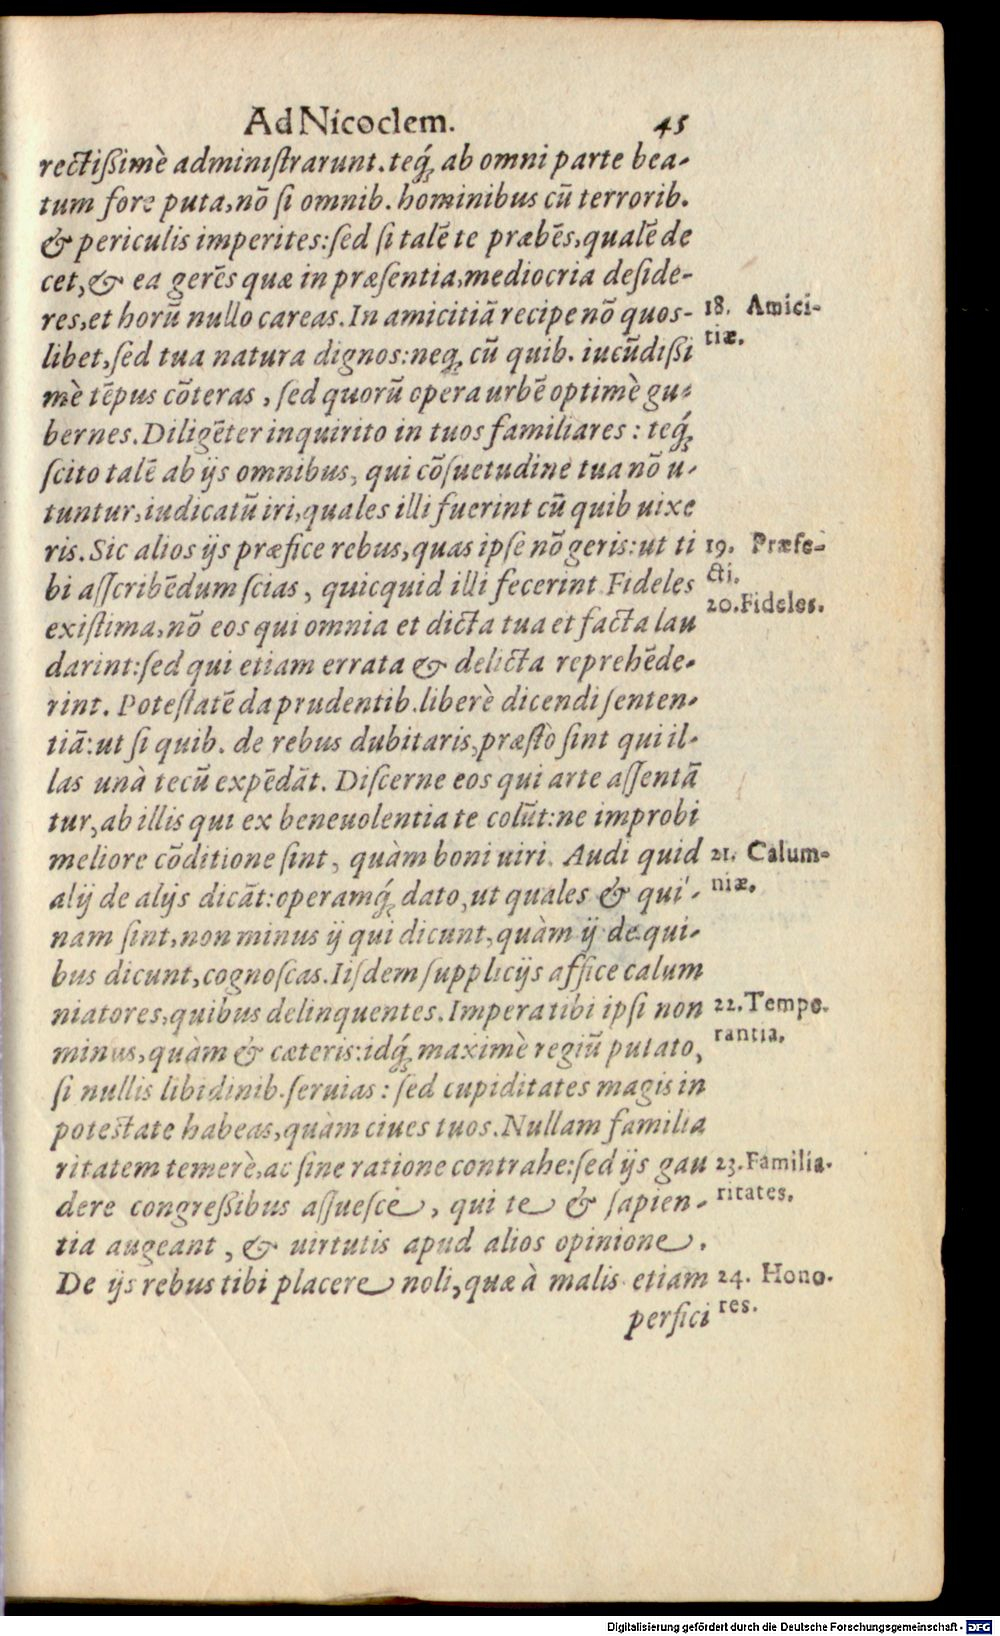 Ad Nicoclem. 45
rectißimè administrarunt. teq́; ab omni parte bea-
tum fore puta, nõ si omnib. hominibus cũ terrorib.
& periculis imperites: sed si talẽ te præbẽs, qualẽ de
cet, & ea gerẽs quæ in præsentia, mediocria deside-
res, et horũ nullo careas. In amicitiã recipe nõ quos-
libet, sed tua natura dignos: neq; cũ quib. iucũdißi
mè tẽpus cõteras, sed quorũ opera urbẽ optimè gu-
bernes. Diligẽter inquirito in tuos familiares: teq́;
scito talẽ ab ijs omnibus, qui cõsuetudine tua nõ u-
tuntur, iudicatũ iri, quales illi fuerint cũ quib uixe
ris. Sic alios ijs præfice rebus, quas ipse nõ geris: ut ti
bi asscribẽdum scias, quicquid illi fecerint. Fideles
existima, nõ eos qui omnia et dicta tua et facta lau
darint: sed qui etiam errata & delicta reprehẽde-
rint. Potestatẽ da prudentib. liberè dicendi senten-
tiã: ut si quib. de rebus dubitaris, præstò sint qui il-
las unà tecũ expẽdãt. Discerne eos qui arte assentã
tur, ab illis qui ex beneuolentia te colũt: ne improbi
meliore cõditione sint, quàm boni uiri. Audi quid
alij de alijs dicãt: operamq́; dato, ut quales & qui-
nam sint, non minus ij qui dicunt, quàm ij de qui-
bus dicunt, cognoscas. Iisdem supplicijs affice calum
niatores, quibus delinquentes. Impera tibi ipsi non
minus, quàm & cæteris: idq́; maximè regiũ putato,
si nullis libidinib. seruias: sed cupiditates magis in
potestate habeas, quàm ciues tuos. Nullam familia
ritatem temerè, ac sine ratione contrahe: sed ijs gau
dere congreßibus assuesce, qui te & sapien-
tia augeant, & uirtutis apud alios opinione.
De ijs rebus tibi placere noli, quæ à malis etiam
perfici
18. Amici-
tiæ.
19. Præfe-
cti.
20. Fideles.
21. Calum-
niæ.
22. Tempe-
rantia.
23. Familia-
ritates.
24. Hono-
res.
Digitalisierung gefördert durch die Deutsche Forschungsgemeinschaft - DFG